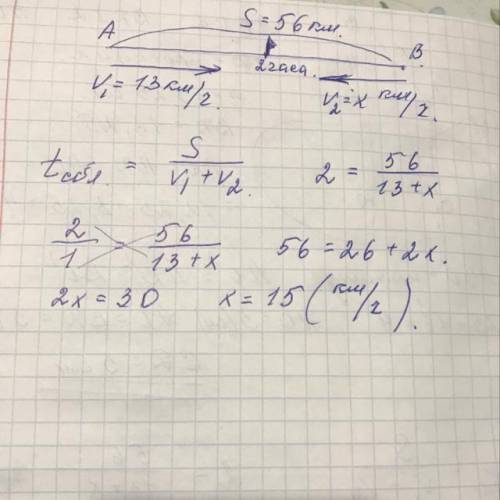 S = 56 км.
A B
2 часа.
V₁ = 13 км/г. V₂ = x км/г.
t сбл. = S / (V₁ + V₂) 2 = 56 / (13 + x)
2/1 = 56 / (13 + x) 56 = 26 + 2x.
2x = 30 x = 15 (км/г).